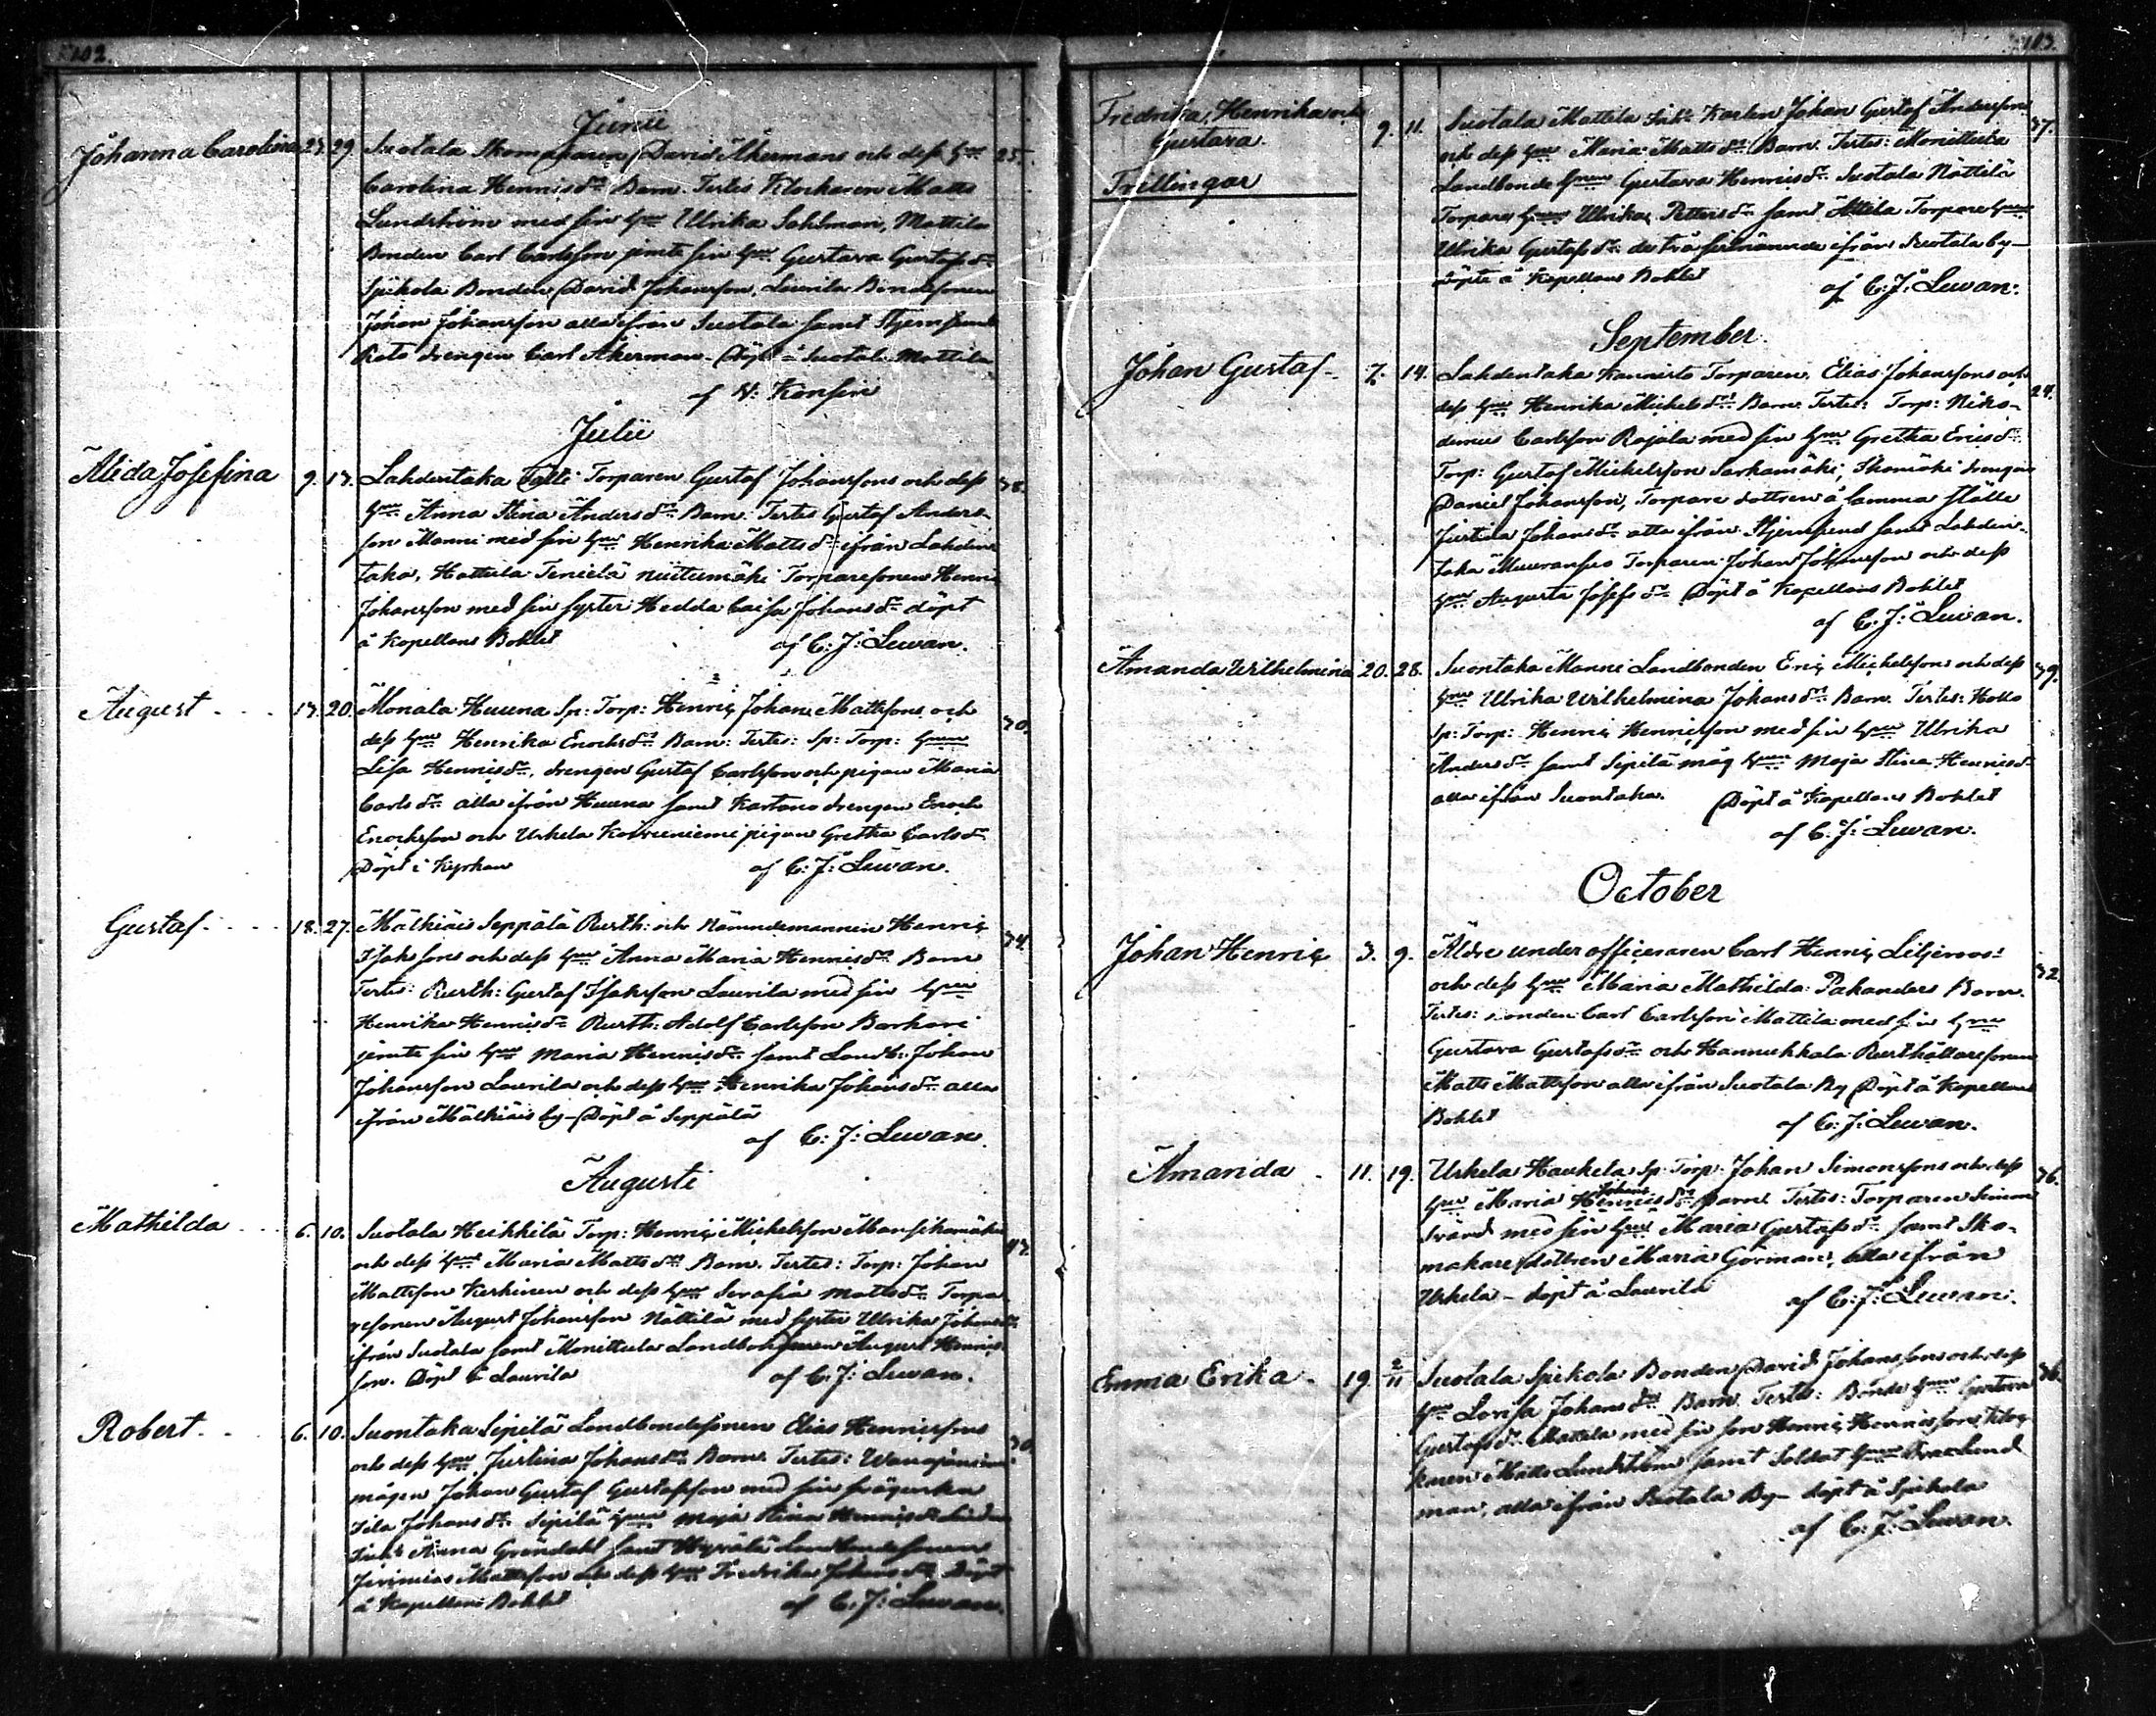 102.
Junii
Johanna Carolina 23. 29. Suotala Skomakaren David Åkermans och dess hu 25.
Carolina Henricsdr Barn. Testes Klockaren Matts
Lundström med sin hu Ulrika Sahlman, Mattila
Bonden Carl Carlsson jemte sin hu Gustava Gustafsdr
Spikola Bonden David Johansson, Laurila Bondesonen
Johan Johansson alla ifrån Suotala samt
drengen Carl Åkerman. Döpt å Suotala Mattila
af Konsin
Julii
Alida Josefina 9. 17. Lahdentaka Torparen Gustaf Johanssons och dess 38.
hu Anna Stina Andersdr Barn. Testes Gustaf Anders-
son Manni med sin hu Henrika Mattsdr ifrån Lahden
taka, Hattula Torparesonen Henric
Johansson med sin syster Hedda Caisa Johansdr döpt
å Kapellans Bohlet af C: J: Lewan.
August 17. 20. Monala Huuna Sp: Torp: Henric Johan Mattssons och 30.
dess hu Henrika Enochsdr Barn: Testes: Sp: Torp: hun
Lisa Henricsdr, drengen Gustaf Carlsson och pigan Maria
Carlsdr alla ifrån Huuna samt Kartano drengen Enoch
Enochsson och Urhela pigan Gretha Carlsdr
Döpt i Kyrkan af C: J: Lewan.
Gustaf 18. 27. Mälkiäis Seppälä Rusth: och Nämndemannen Henric 34.
Isakssons och dess hu Anna Maria Henricsdr Barn
Testes: Rusth: Gustaf Isaksson Laurila med sin hu
Henrika Henricsdr Rusth: Adolf Carlsson Barkari
jemte sin hu Maria Henricsdr samt Landb: Johan
Johansson Laurila och dess hu Henrika Johansdr alla
ifrån Mälkiäis by Döpt å Seppälä
af C: J: Lewan.
Augusti
Mathilda 6. 10. Suotala Heikkilä Torp: Henric Michelsson Mansikamäki
och dess hu Maria Mattsdr Barn. Testes: Torp: Johan
Mattsson Keskinen och dess hu Serafia Mattsdr Torpa-
resonen August Johansson Nättilä med syster Ulrika Johansdr
ifrån Suotala samt Monittula August Henrics-
son. Döpt å Laurila af C: J: Lewan.
Robert 6. 10. Suontaka Sipilä Landbondesonen Elias Henricssons 30.
och dess hu Justina Johansdr Barn. Testes:
mågen Johan Gustaf Gustafsson med sin
Johansdr Sipilä hun Maja Stina Henricsdr
Anna Gröndahl samt Landbondesonen
Jeremias Mattsson och dess hu Fredrika Johansdr Döpt
å Kapellans Bohlet af C: J: Lewan.
103.
Fredrika, Henrika och
Gustava.
Trillingar
9. 11. Suotala Mattila Inhs Karlen Johan Gustaf Andersson 37.
och dess hu Maria Mattsdr Barn. Testes: Monittula
Landbonde hun Gustava Henricsdr Suotala Nättilä
Torpare hun Ulrika Pettersdr samt Attila Torpare hun
Ulrika Gustafsdr de två ifrån Suotala by
döpte å Kapellans Bohlet af C: J: Lewan.
September
Johan Gustaf 7. 14. Lahdentaka Kannisto Torparen Elias Johanssons och 24.
dess hu Henrika Michelsdr Barn. Testes: Torp: Niko-
demus Carlsson Rajala med sin hu Gretha Ericsdr
Torp: Gustaf Mickelsson Sarkamäki, Skomäki drengen
Daniel Johansson, Torpare dottren å samma ställe
Justina Johansdr alla ifrån samt Lahden-
taka Torparen Johan Johansson och dess
hu Augusta Josefsdr Döpt å Kapellans Bohlet
af C: J: Lewan.
Amanda Wilhelmina 20. 28. Suontaka Manni Landbonden Eric Michelssons och dess 39.
hu Ulrika Wilhelmina Johansdr Barn. Testes: Hollo
Sp: Torp: Henric Henricsson med sin hu Ulrika
Andersdr samt Sipilä måg hun Maja Stina Henricsdr
alla ifrån Suontaka. Döpt å Kapellans Bohlet
af C: J: Lewan.
October
Johan Henric 3. 9. Äldre underofficeraren Carl Henric Liljeroos: 32.
och dess hu Maria Mathilda Pakanders Barn.
Testes: Bonden Carl Carlsson Mattila med sin hu
Gustava Gustafsdr och Hannukkala Rusthållaresonen
Matts Mattsson alla ifrån Suotala By Döpt å Kapellans
Bohlet af C: J: Lewan.
Amanda 11. 19. Urhela Haukela Sp: Torp: Johan Simonssons och dess 36.
hu Maria Johans dr Barn. Testes: Torparen Simon
Svärd med sin hu Maria Gustafsdr samt Sko-
makare dottren Maria Görman, alla ifrån
Urhela - döpt å Laurila af C: J: Lewan.
Emma Erika 19. 2/11 Suotala Spikola Bonden David Johanssons och dess 36.
hu Lovisa Johansdr Barn Testes: Bonde hun Gustava
Gustafsdr Mattila med sin son Henric Henricsson, Kloc-
karen Matts Lundström samt Soldat hun
man, alla ifrån Suotala By - döpt å Spikola
af C: J: Lewan.